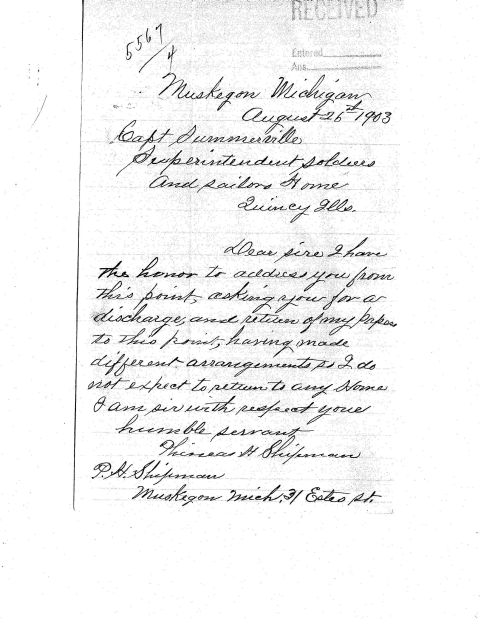 RECEIVED
5567
/4
Entered
Ans.
Muskegon Michigan
August 26th 1903
Capt Summerville
Superintendent soldiers
and sailors Home
Quincy Ills.
Dear sire I have
the honor to address you from
this point, asking you for a
discharge, and return of my Papers
to this point, having made
different arrangements so I do
not expect to return to any Home
I am sir with respect your
humble servant
Phineas H Shipman
P. H. Shipman
Muskegon Mich, 31 Estes st.